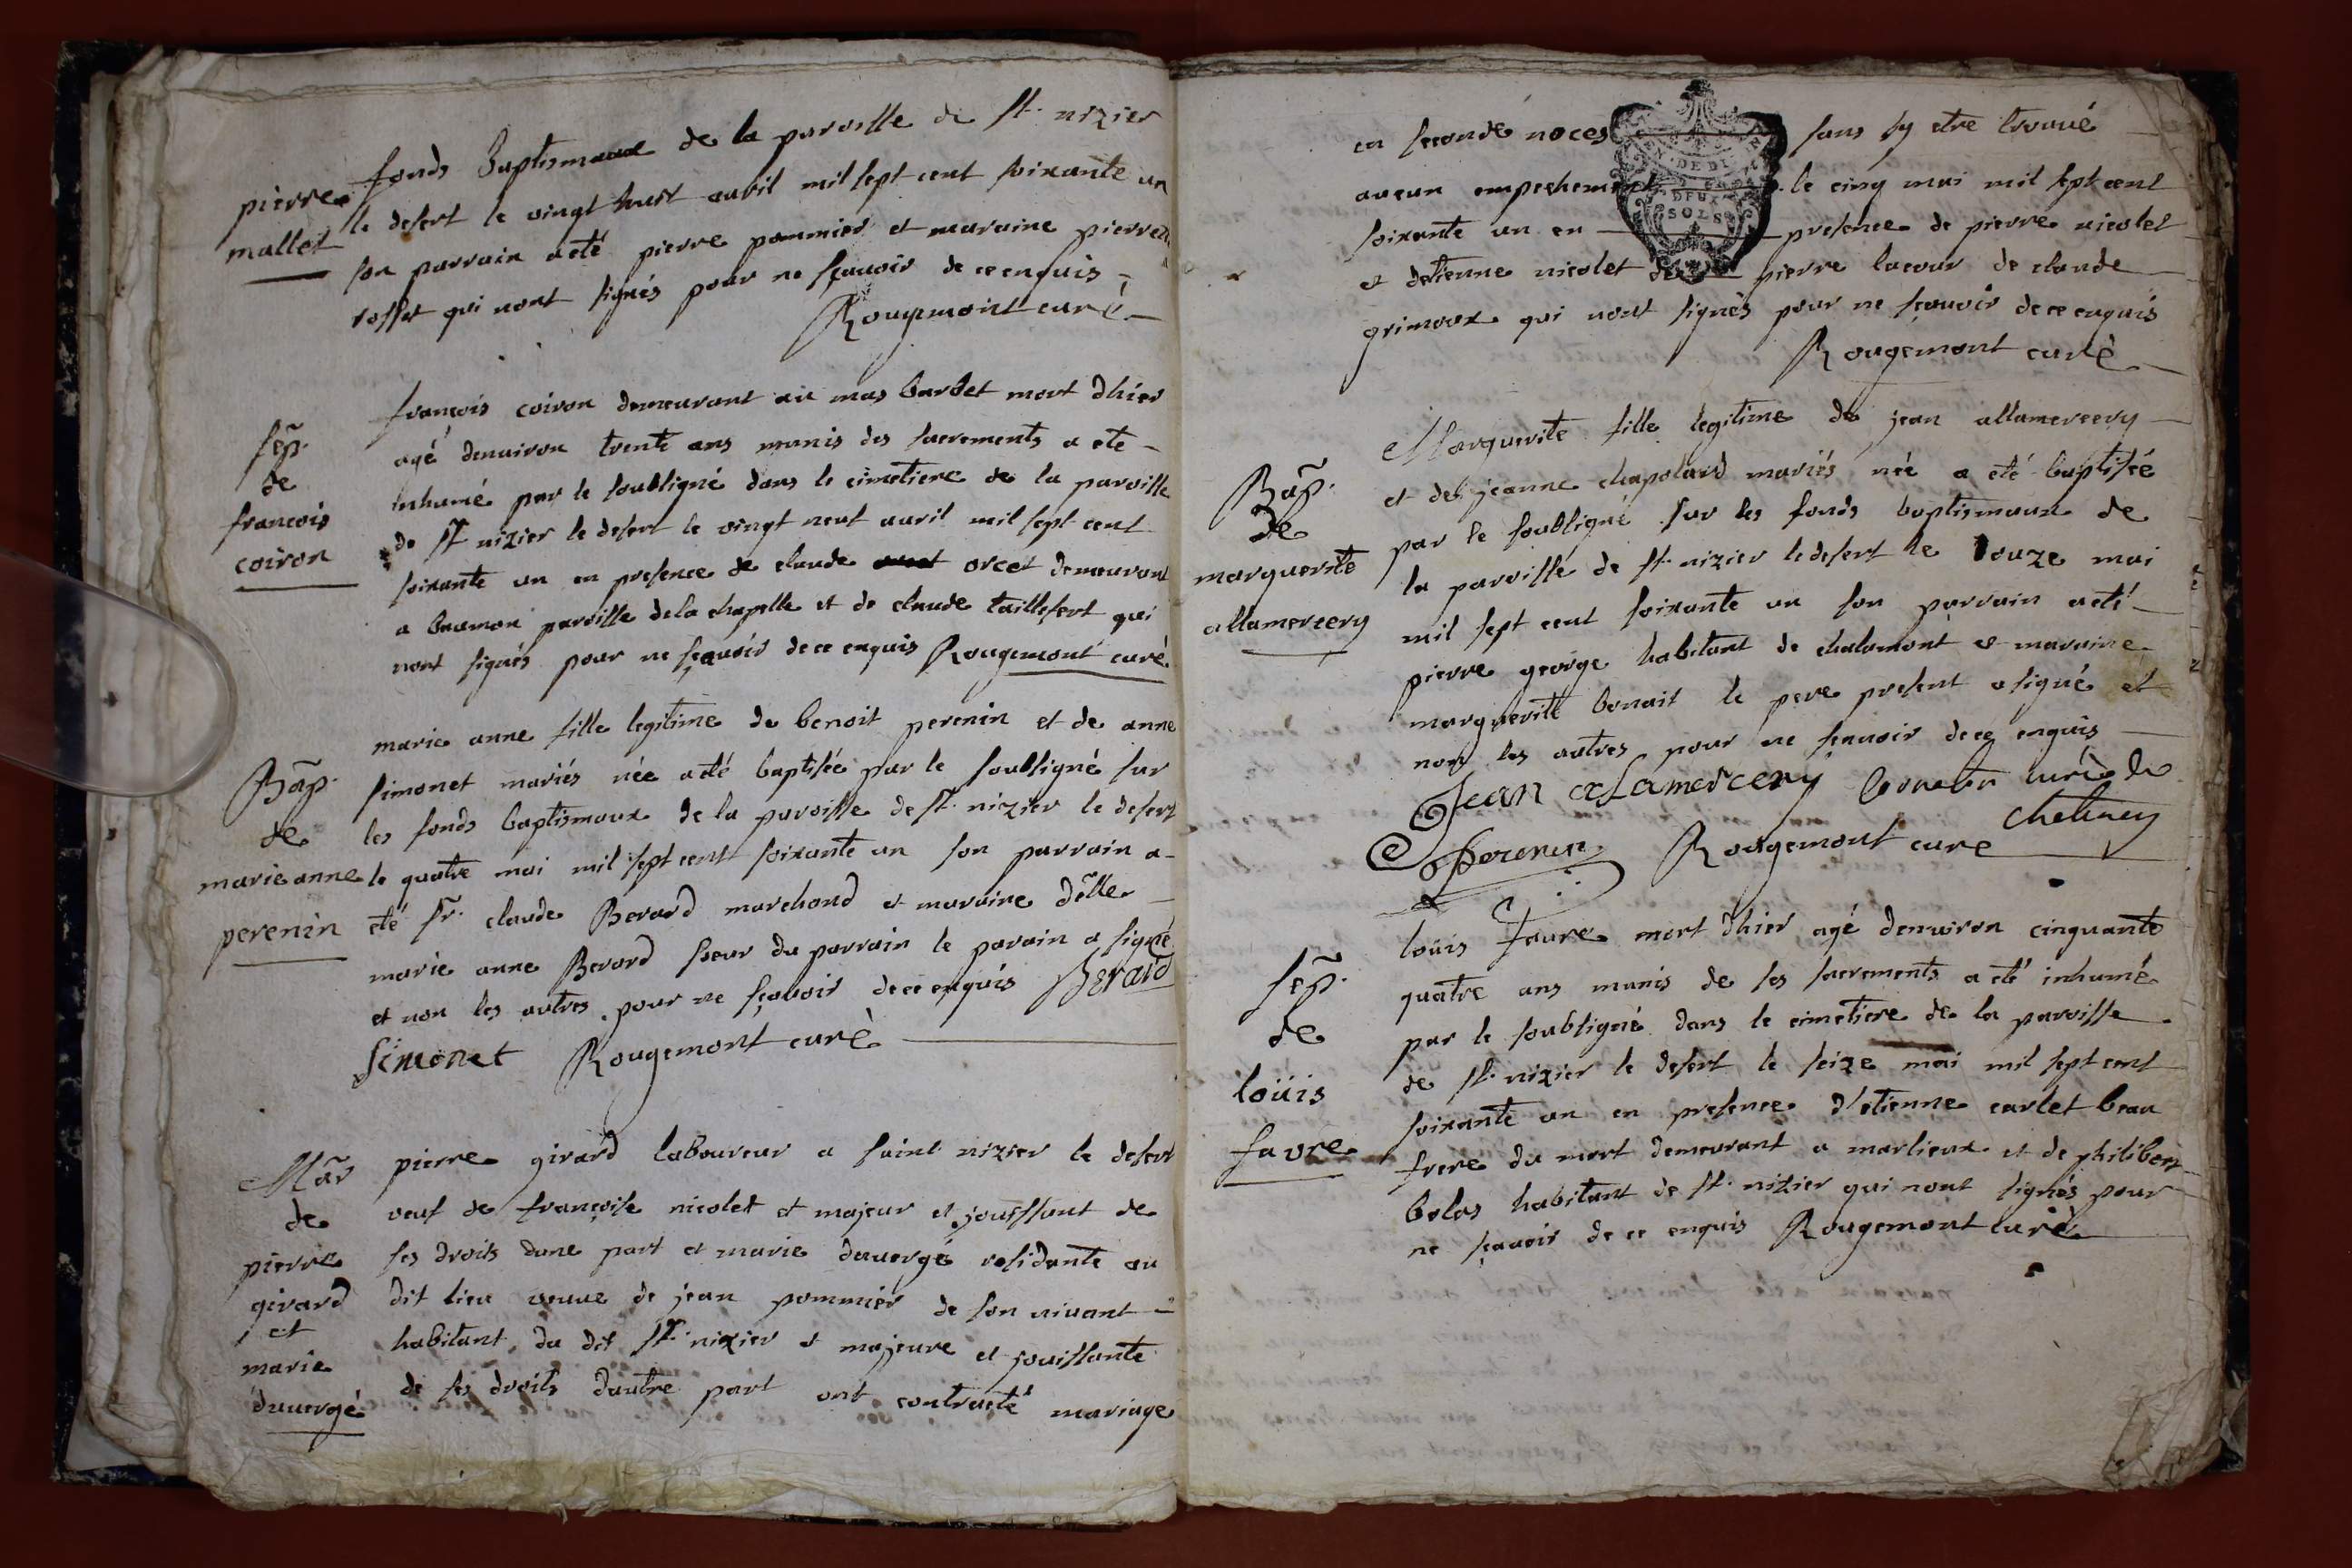 pierre
mallet
fonds Baptismaux de la paroisse de st. nizier
le desert le vingt huit avril mil sept cent soixante un
son parrain a eté pierre pommier et maraine pierrette
rosset qui nont signés pour ne sçavoir de ce enquis
Rougemont curé
sep.
de
francois
coiron
francois coiron demeurant au mas barbet mort dhier
agé denviron trente ans munis des sacrements a eté
inhumé par le soubsigné dans le cimetiere de la paroisse
de st nizier le desert le vingt neuf avril mil sept cent
soixante un en presence de claude orcet demeurant
a baumon paroisse de la chapelle et de claude taillefert qui
nont signés pour ne sçavoir de ce enquis Rougemont curé
Bap.
de
marie anne
perenin
marie anne fille legitime de benoit perenin et de anne
simonet mariés née a eté baptisée par le soubsigné sur
les fonds baptismaux de la paroisse de st. nizier le desert
le quatre mai mil sept cent soixante un son parrain a
eté sr. claude Berard marchand et maraine delle
marie anne Berard soeur du parrain le parain a signé
et non les autres pour ne sçavoir de ce enquis Berard
Simonet Rougemont curé
Mar
de
pierre
girard
et
marie
duvergé
pierre girard laboureur a saint nizier le desert
veuf de françoise nicolet et majeur et jouissant de
ses droits dune part et marie duvergé residante au
dit lieu veuve de jean pommier de son vivant
habitant du dit st nizier et majeure et jouissante
de ses droits dautre part ont contracté mariage
en seconde noces sans sy etre trouvé
aucun empechement le cinq mai mil sept cent
soixante un en presence de pierre nicolet
et detienne nicolet de pierre lacour de claude
grimoux qui nont signés pour ne sçavoir de ce enquis
Rougemont curé
GEN. DE DI
DEUX
SOLS
Bap.
de
marguerite
allamercery
Marguerite fille legitime de jean allamercery
et de jeanne chapoland mariés née a eté baptisée
par le soubsigné sur les fonds baptismaux de
la paroisse de st. nizier le desert le douze mai
mil sept cent soixante un son parrain a eté
pierre george habitant de chalamont et maraine
marguerite bonait le pere present a signé et
non les autres pour ne sçavoir de ce enquis
Jean aLamercery curé de
chatenay
perenin Rougemont curé
sep.
de
loüis
favre
loüis favre mort dhier agé denviron cinquante
quatre ans munis de ses sacrements a eté inhumé
par le soubsigné dans le cimetiere de la paroisse
de st. nizier le desert le seize mai mil sept cent
soixante un en presence d'etienne carlet beau
frere du mort demeurant a marlieux et de philibert
bolas habitant de st. nizier qui nont signés pour
ne sçavoir de ce enquis Rougemont curé